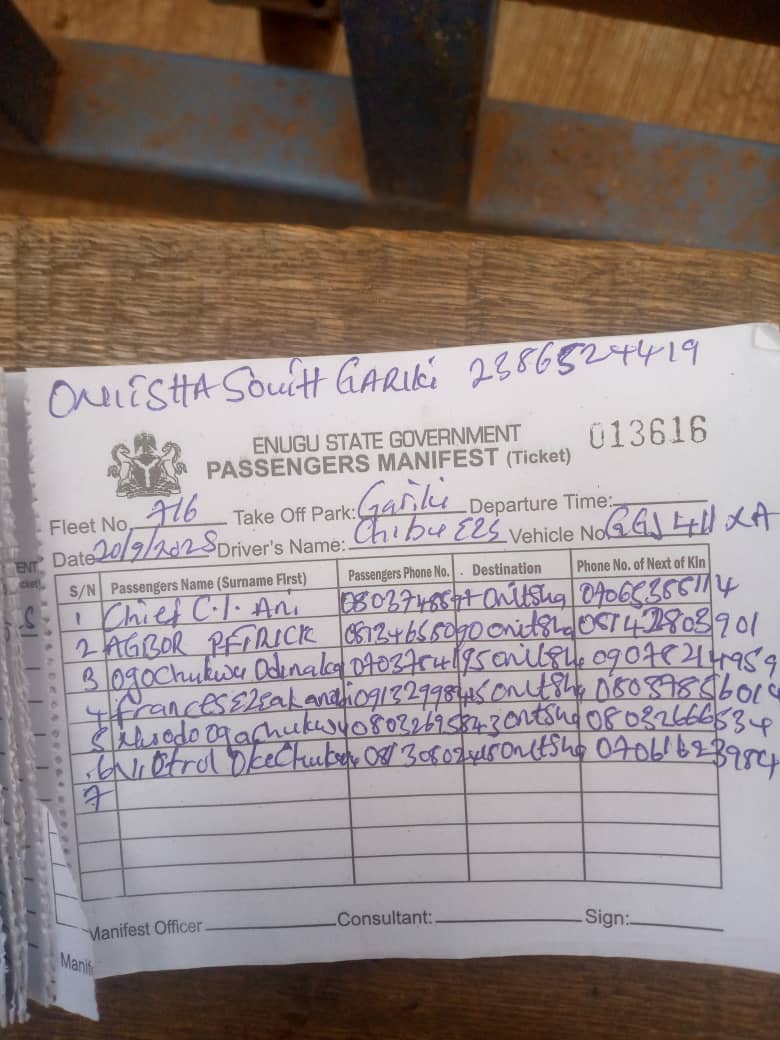 ONITSHA SOUTH GARIKI 2386524419
ENUGU STATE GOVERNMENT 013616
PASSENGERS MANIFEST (Ticket)
Fleet No. 716 Take Off Park: Gariki Departure Time:
Date 20/9/2025 Driver's Name: Chibu EZE Vehicle No. GGJ 411 XA
S/N Passengers Name (Surname First) Passengers Phone No. Destination Phone No. of Next of Kin
1 Chief C.I. Ani onitsha
2 AGBOR PETRICK 08134658090 onitsha 08142803901
3 Ogochukwu Odinaka onitsha 09078214959
4 Frances onitsha
5 Ogochukwu 08032695843 onitsha 08032666534
6 Okechukwu onitsha 07061623984
7
Manifest Officer Consultant: Sign:
Manif